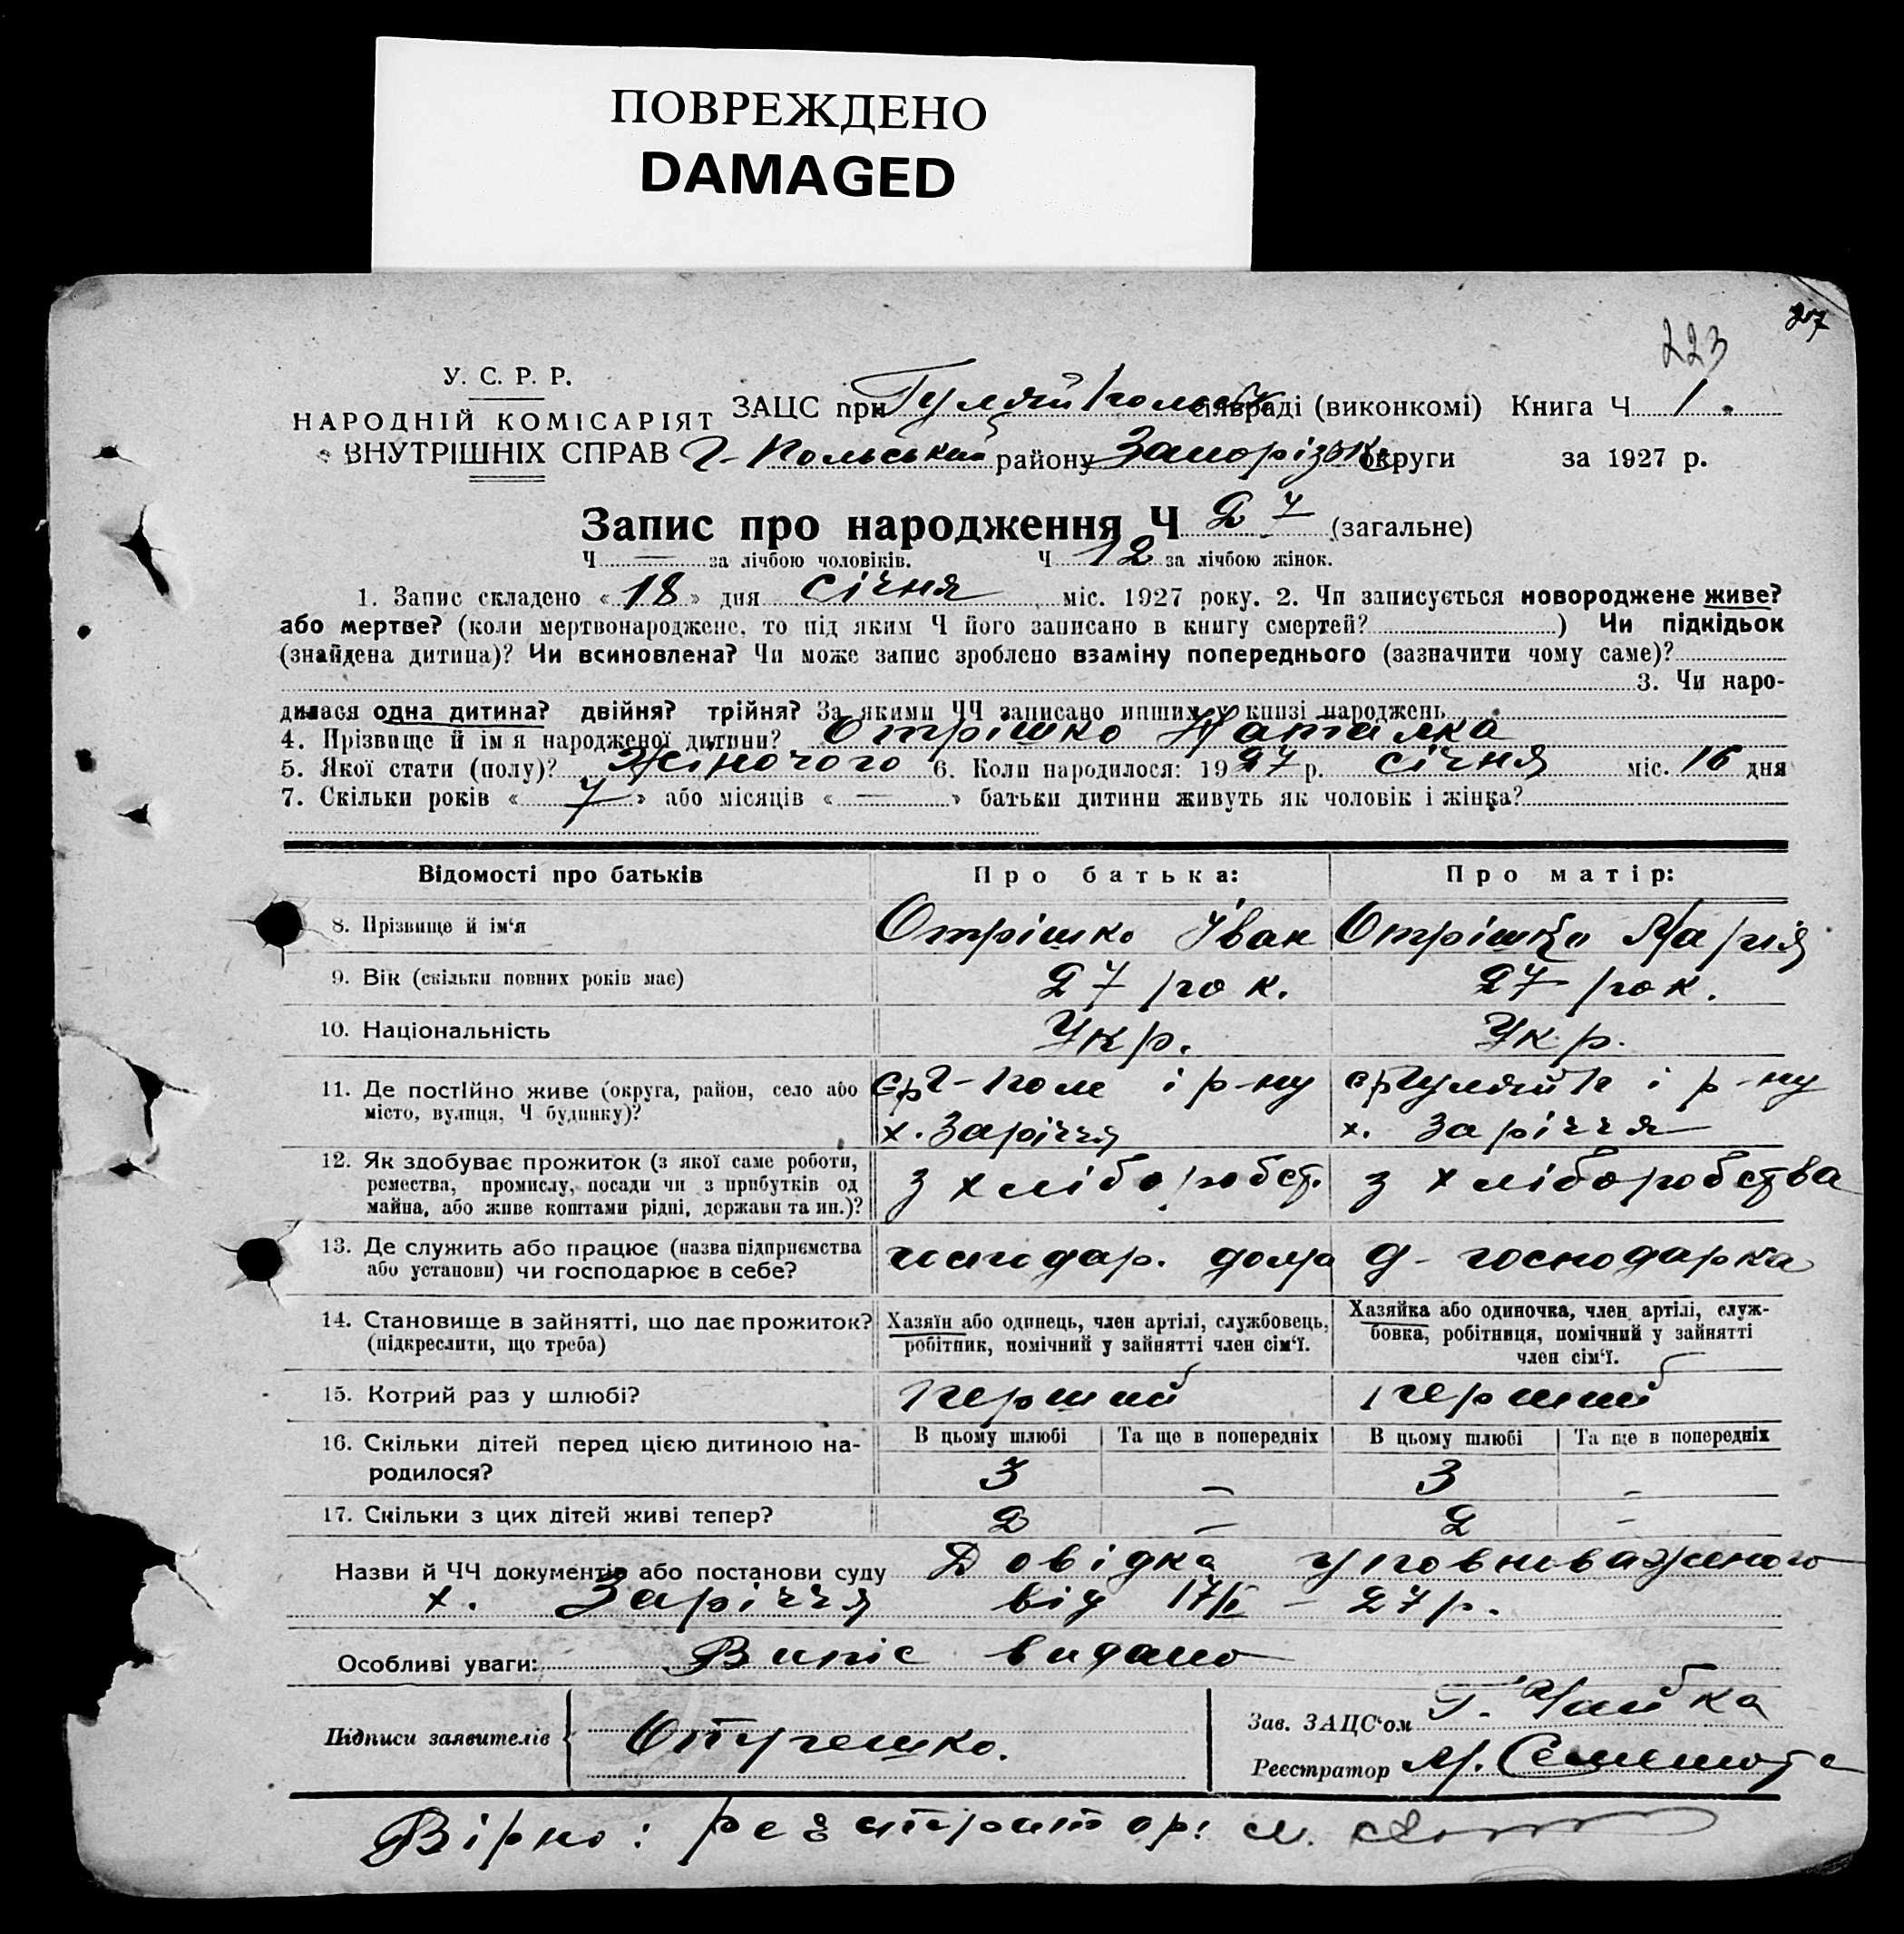 ПОВРЕЖДЕНО
DAMAGED
223
У. С. Р. Р.
НАРОДНІЙ КОМІСАРІЯТ
ВНУТРІШНІХ СПРАВ
ЗАЦС при Гуляйпольск. сільраді (виконкомі) Книга Ч 1.
Г-Польський району Запорізьк. округи за 1927 р.
Запис про народження Ч 27 (загальне)
Ч — за лічбою чоловіків. Ч 12 за лічбою жінок.
1. Запис складено «18» дня січня міс. 1927 року. 2. Чи записується новороджене живе?
або мертве? (коли мертвонароджене, то під яким Ч його записано в книгу смертей? ) Чи підкідьок
(знайдена дитина)? Чи всиновлена? Чи може запис зроблено взаміну попереднього (зазначити чому саме)?
3. Чи наро-
дилася одна дитина? двійня? трійня? За якими ЧЧ записано инших у книзі народжень
4. Прізвище й ім'я народженої дитини? Отрішко Наталка
5. Якої стати (полу)? Жіночого 6. Коли народилося: 1927 р. січня міс. 16 дня
7. Скільки років «7» або місяців «—» батьки дитини живуть як чоловік і жінка?
Відомості про батьків Про батька: Про матір:
8. Прізвище й ім'я Отрішко Іван Отрішко Марія
9. Вік (скільки повних років має) 27 рок. 27 рок.
10. Національність Укр. Укр.
11. Де постійно живе (округа, район, село або Г-Поле і р-ну Гуляй П і р-ну
місто, вулиця, Ч будинку)? х. Заріччя х. Заріччя
12. Як здобуває прожиток (з якої саме роботи,
ремества, промислу, посади чи з прибутків од з хліборобст. з хліборобства
майна, або живе коштами рідні, держави та ин.)?
13. Де служить або працює (назва підприємства
або установи) чи господарює в себе? господар. дома д-господарка
14. Становище в зайнятті, що дає прожиток? Хазяїн або одинець, член артілі, службовець, Хазяйка або одиночка, член артілі, служ-
(підкреслити, що треба) робітник, помічний у зайнятті член сім'ї. бовка, робітниця, помічний у зайнятті
член сім'ї.
15. Котрий раз у шлюбі? Перший Перший
16. Скільки дітей перед цією дитиною на- В цьому шлюбі Та ще в попередніх В цьому шлюбі Та ще в попередніх
родилося? 3 — 3 —
17. Скільки з цих дітей живі тепер? 2 — 2 —
Назви й ЧЧ документів або постанови суду Довідка уповноваженого
х. Заріччя від 17/I – 27 р.
Особливі уваги: Випіс видано
Підписи заявителів Отрешко.
Зав. ЗАЦС'ом Г. Чайка
Реєстратор М.
Вірно: реєстратор: М.